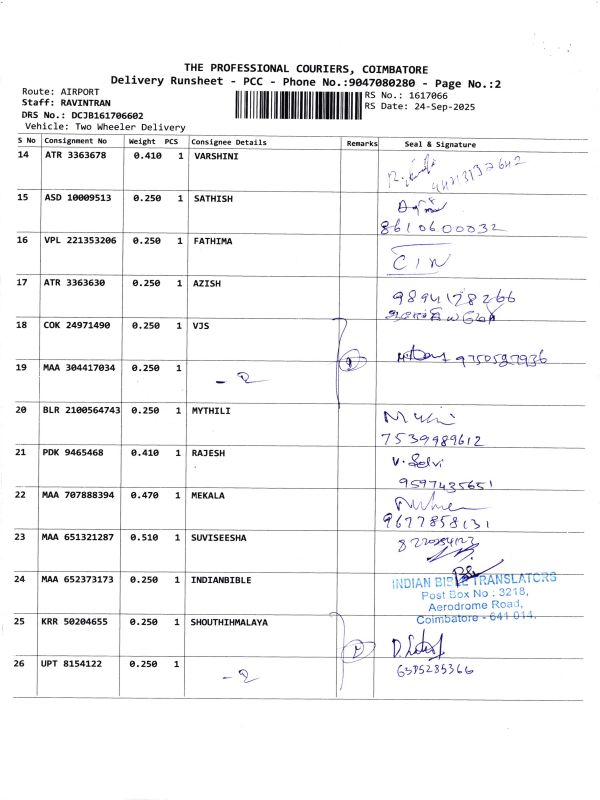 THE PROFESSIONAL COURIERS, COIMBATORE
Delivery Runsheet - PCC - Phone No.:9047080280 - Page No.:2
Route: AIRPORT
RS No.: 1617066
Staff: RAVINTRAN
RS Date: 24-Sep-2025
DRS No.: DCJB161706602
Vehicle: Two Wheeler Delivery
S No Consignment No Weight PCS Consignee Details Remarks Seal & Signature
14 ATR 3363678 0.410 1 VARSHINI
15 ASD 10009513 0.250 1 SATHISH
8610600032
16 VPL 221353206 0.250 1 FATHIMA
17 ATR 3363630 0.250 1 AZISH
9894178266
18 COK 24971490 0.250 1 VJS
19 MAA 304417034 0.250 1
20 BLR 2100564743 0.250 1 MYTHILI
7539989612
21 PDK 9465468 0.410 1 RAJESH V. Selvi
9597435651
22 MAA 707888394 0.470 1 MEKALA
9677858131
23 MAA 651321287 0.510 1 SUVISEESHA
24 MAA 652373173 0.250 1 INDIANBIBLE
INDIAN BIBLE TRANSLATORS
Post Box No : 3218,
Aerodrome Road,
Coimbatore - 641 014.
25 KRR 50204655 0.250 1 SHOUTHIHMALAYA
26 UPT 8154122 0.250 1
6385285366